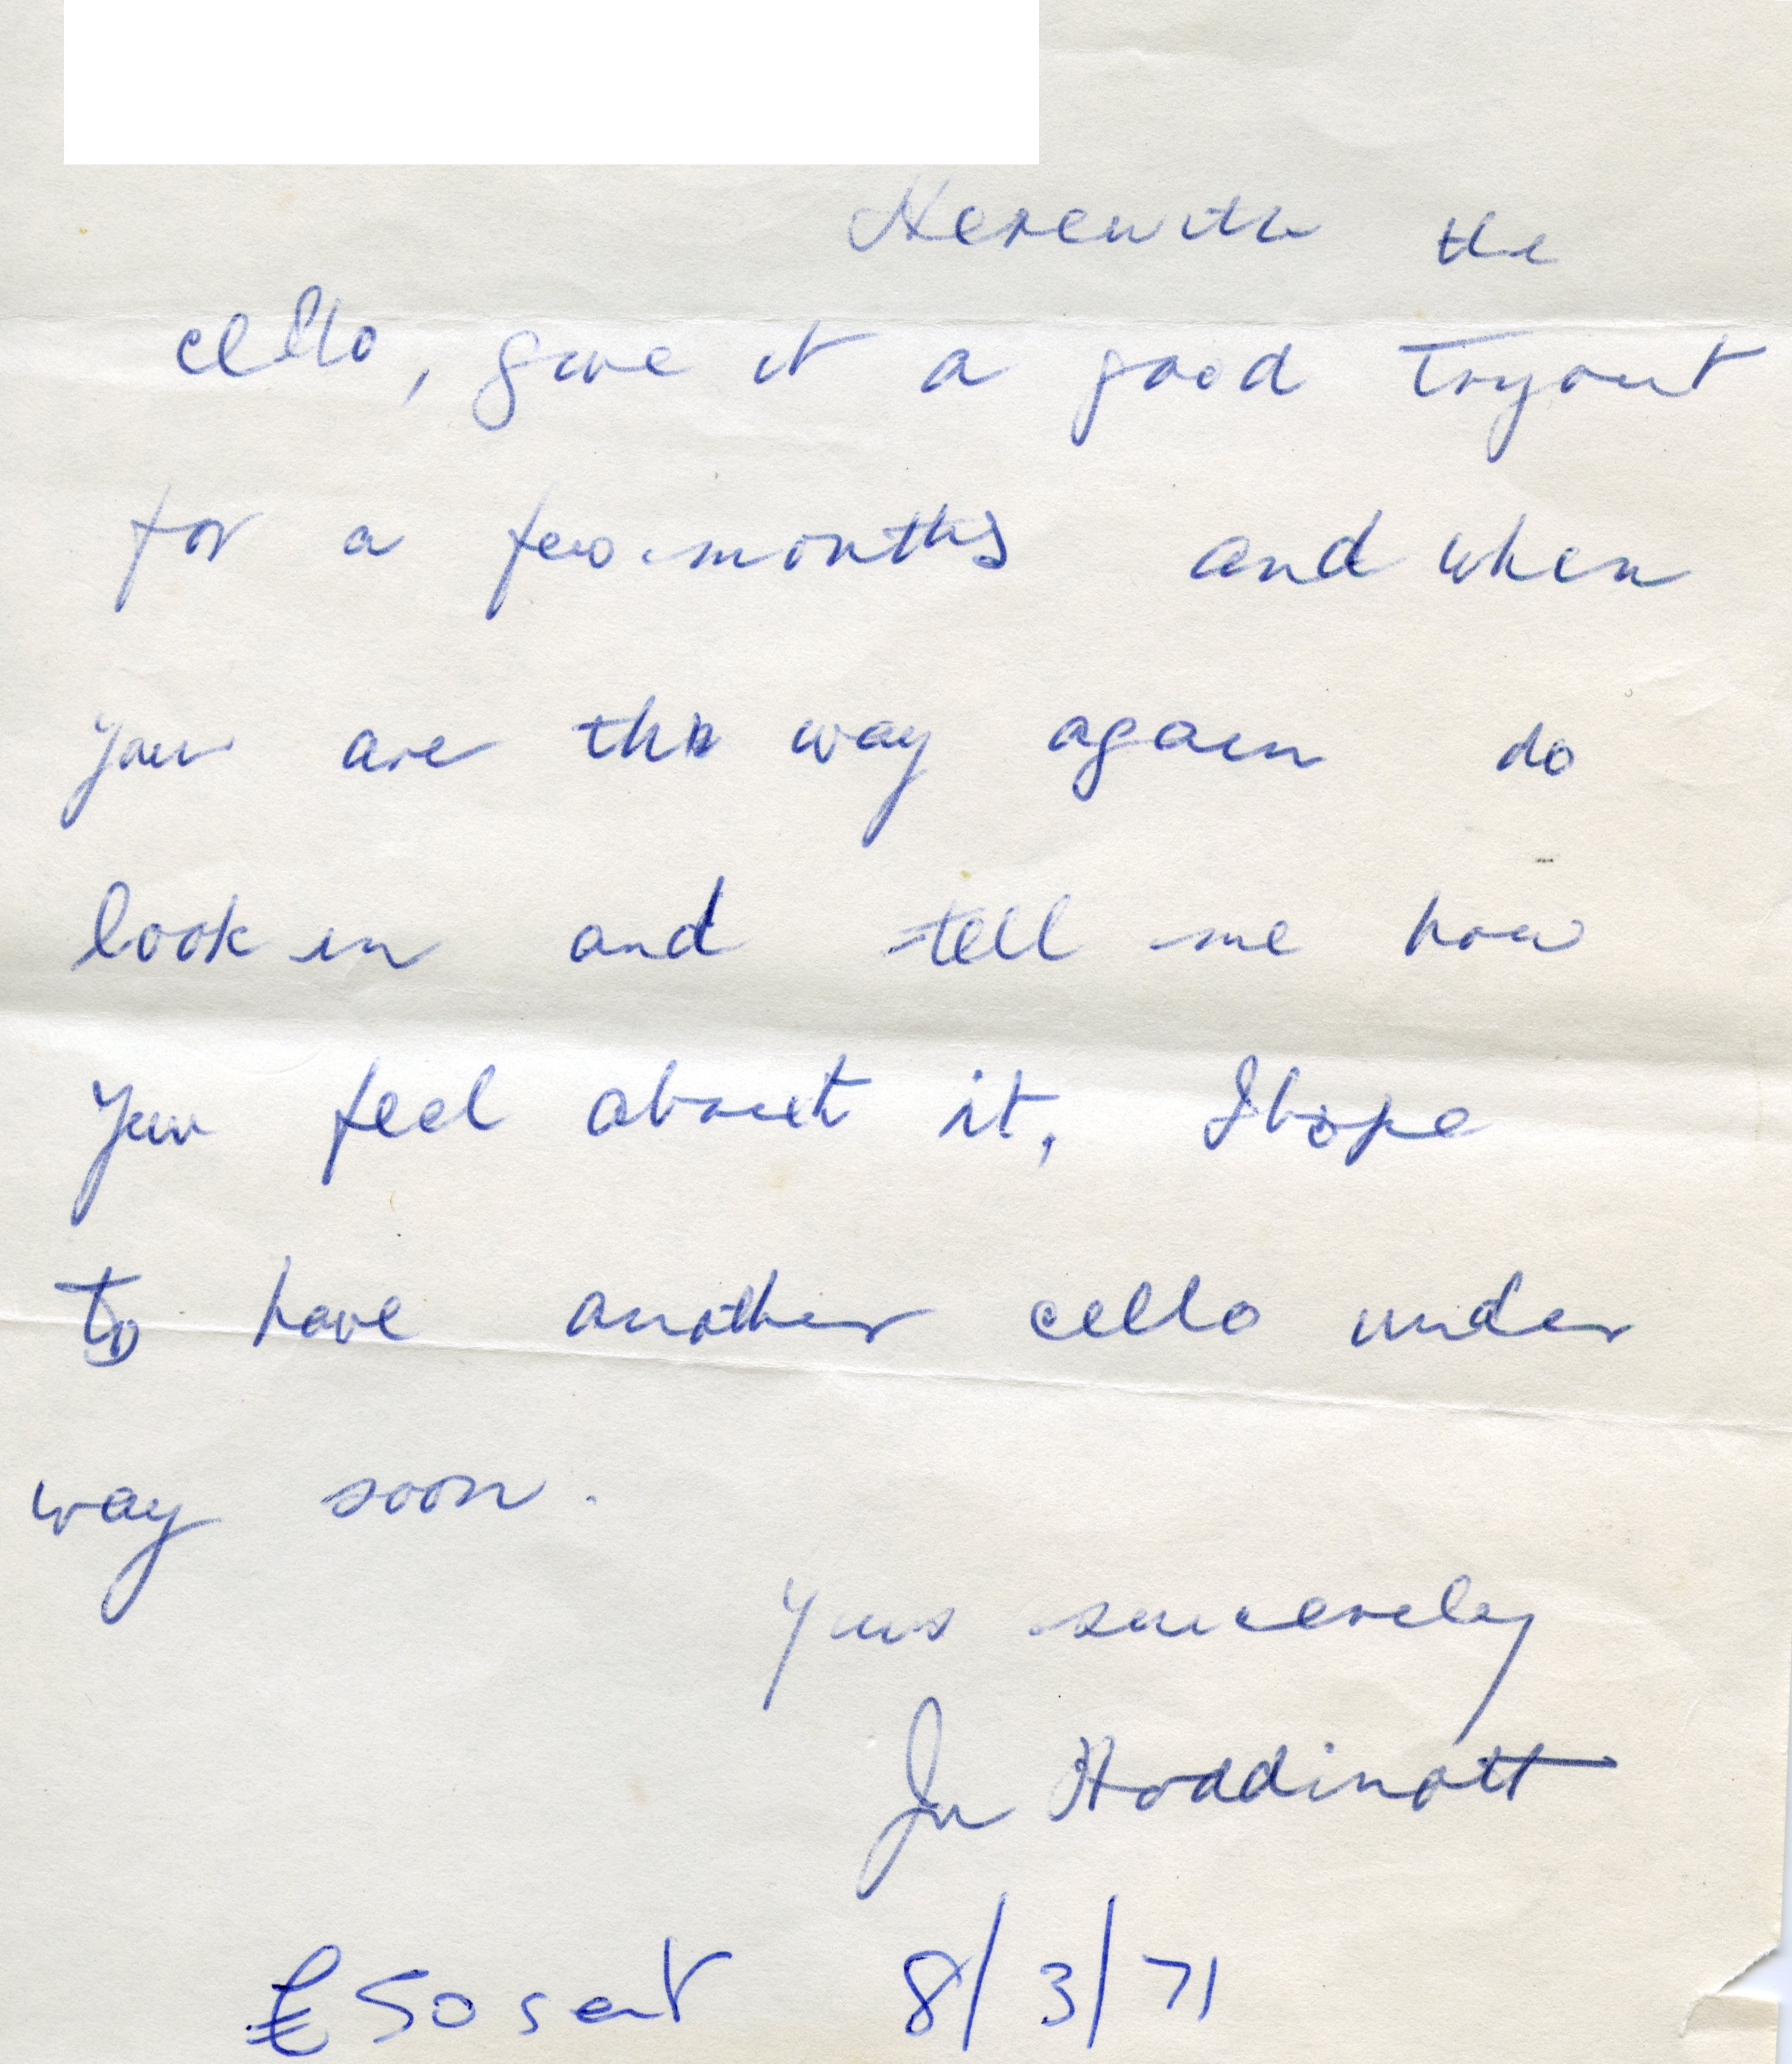 Herewith the
cello, give it a good tryout
for a few months and when
you are this way again do
look in and tell me how
you feel about it, I hope
to have another cello under
way soon.
Yours sincerely
Hoddinott
£50 sent 8/3/71